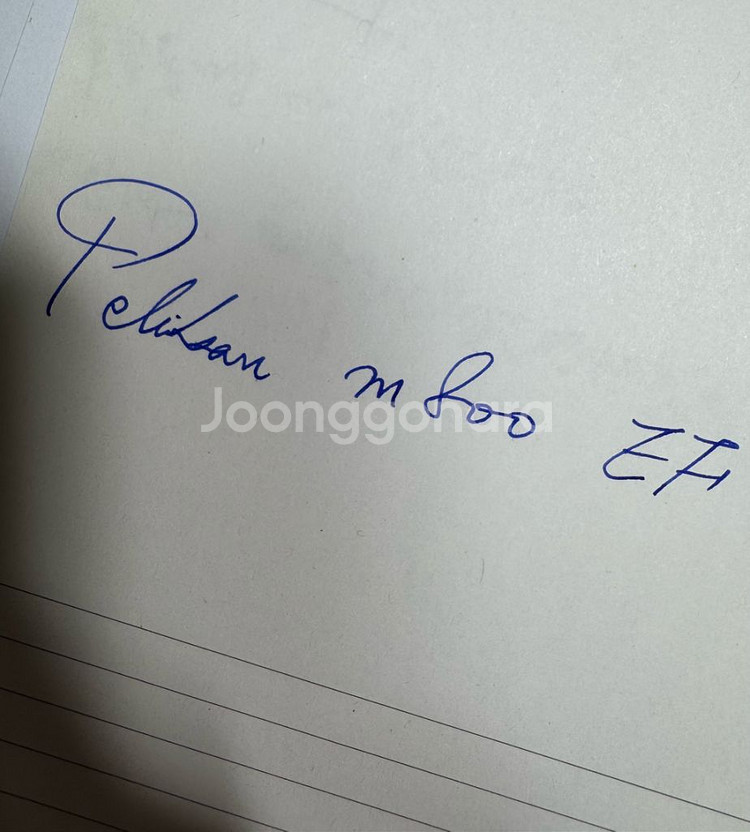 Pelikan m 800 EF
Joonggonara